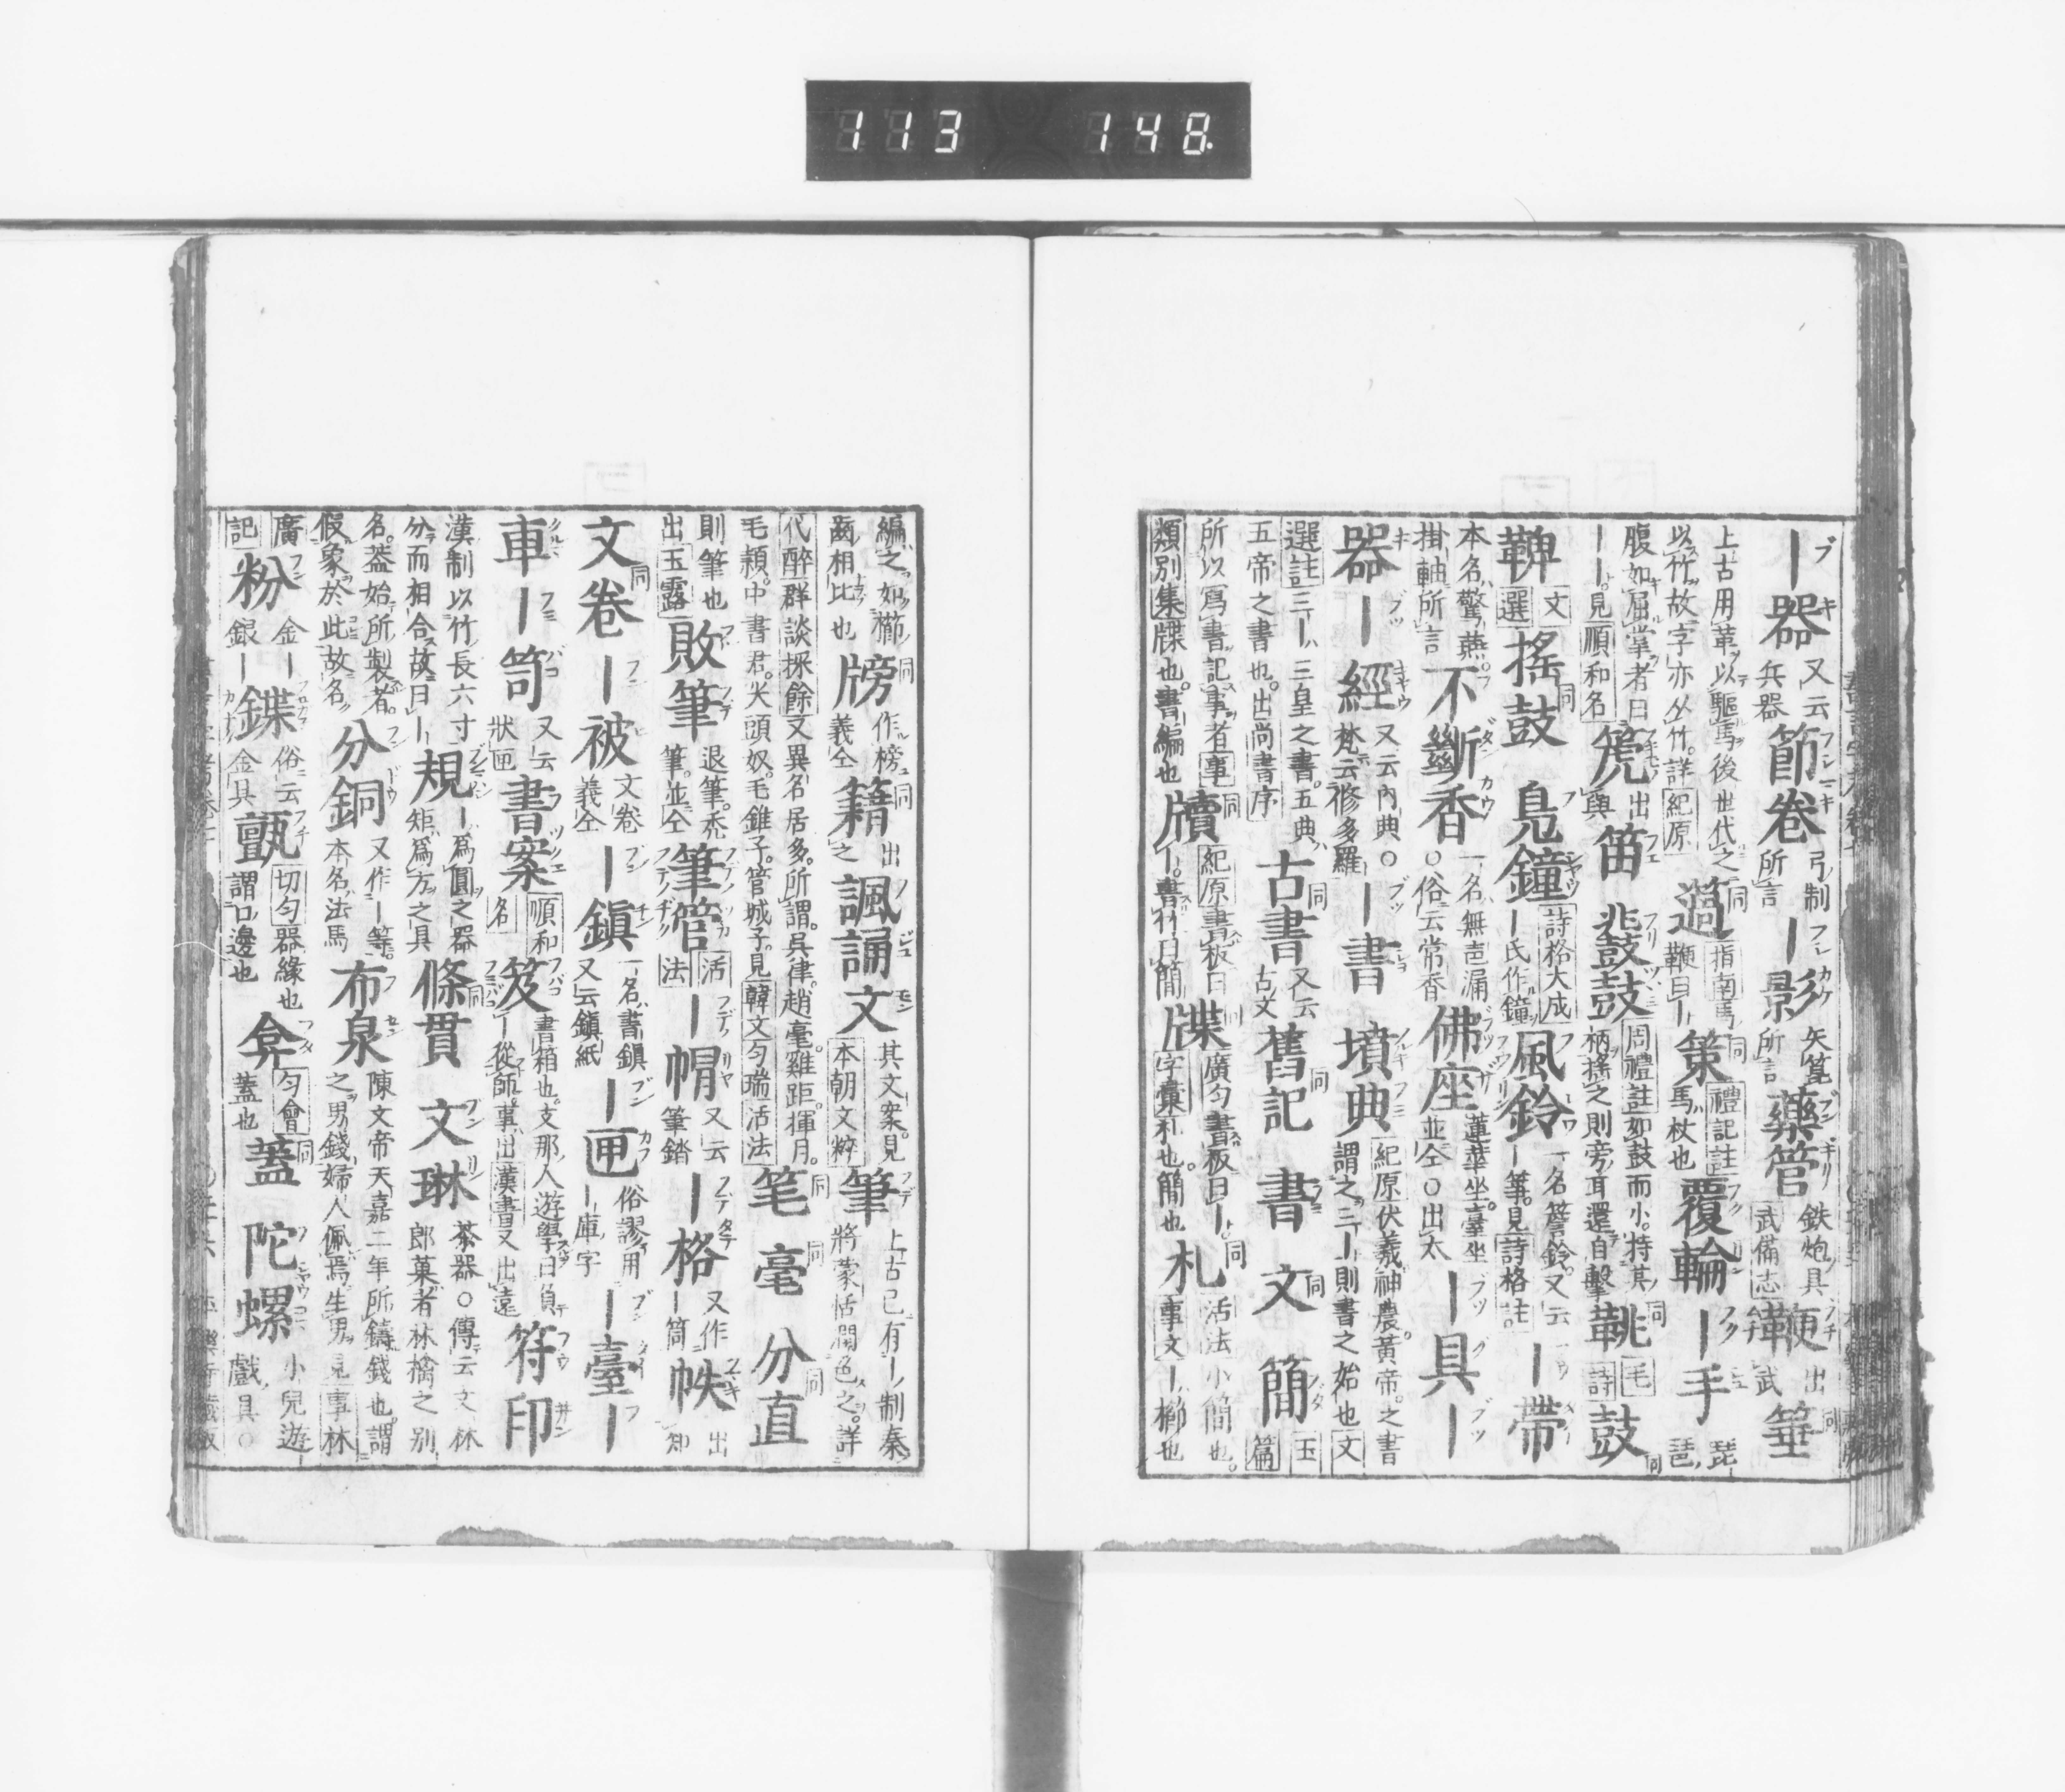 113 148
｜器 又云兵器 節卷 弓制所言 ｜影 矢篦所言 藥管 鉄炮具武備志 鞭 出武 箠
上古用革以驅馬後世代之以竹故字亦从竹詳紀原 檛 指南馬鞭曰｜ 策 禮記註馬杖也 覆輪 ｜手 琵琶
腹如屈掌者曰｜｜見順和名 箎 出與 笛 鼗鼓 周禮註如鼓而小特其柄搖之則旁耳還自擊 鞉 毛詩 鼓
鞞 文選 搖鼓 鳧鐘 詩格大成｜氏作鐘 風鈴 一名簷鈴又云｜箏見詩格註 ｜帶
本名驚燕掛軸所言 不斷香 一名無芭漏○俗云常香 佛座 蓮華坐臺坐並仝○出太 ｜具 ｜
器 ｜經 又云内典○梵云修多羅 ｜書 墳典 紀原伏羲神農黃帝之書謂之三｜則書之始也文
選註三｜三皇之書五典五帝之書也出尚書序 古書 又云古文 舊記 書 文 簡 玉篇
所以寫書記事者事類別集牒也書編也 牘 紀原書板曰｜書竹曰簡 牒 廣匀書板曰｜字彙札也簡也 札 活法小簡也事文｜櫛也
編之如櫛齒相比也 牓 作榜義仝 籍 出之 諷誦文 其文案見本朝文粹 筆 上古已有｜制秦將蒙恬潤色之詳
代醉群談採餘又異名居多所謂吳律趙毫雞距揮月毛穎中書君尖頭奴毛錐子管城子見韓文匀瑞活法 笔 毫 分直
則筆也出玉露 敗筆 退筆禿筆並仝 筆管 活法 ｜帽 又云筆錔 ｜格 又作｜筒 帙 出知
文卷 ｜被 文卷義仝 ｜鎭 一名書鎭又云鎭紙 ｜匣 俗謬用｜庫字 ｜臺 ｜
車 ｜笥 又云狀匣 書案 順和名 笈 書箱也支那人遊學曰負｜從師事出漢書又出遠 符印
漢制以竹長六寸分而相合故曰｜ 規 ｜爲圓之器矩爲方之具 條貫 文琳 茶器○傳云文林郎菓者林檎之別
名葢始所製者假象於此故名 分銅 又作｜等本名法馬 布泉 陳文帝天嘉二年所鑄錢也謂之男錢婦人佩焉生男見事林
廣記 粉 金｜銀｜ 鍱 俗云金具 甋 切匀器緣也謂口邊也 弇 匀會蓋也 蓋 陀螺 小兒遊戲具○